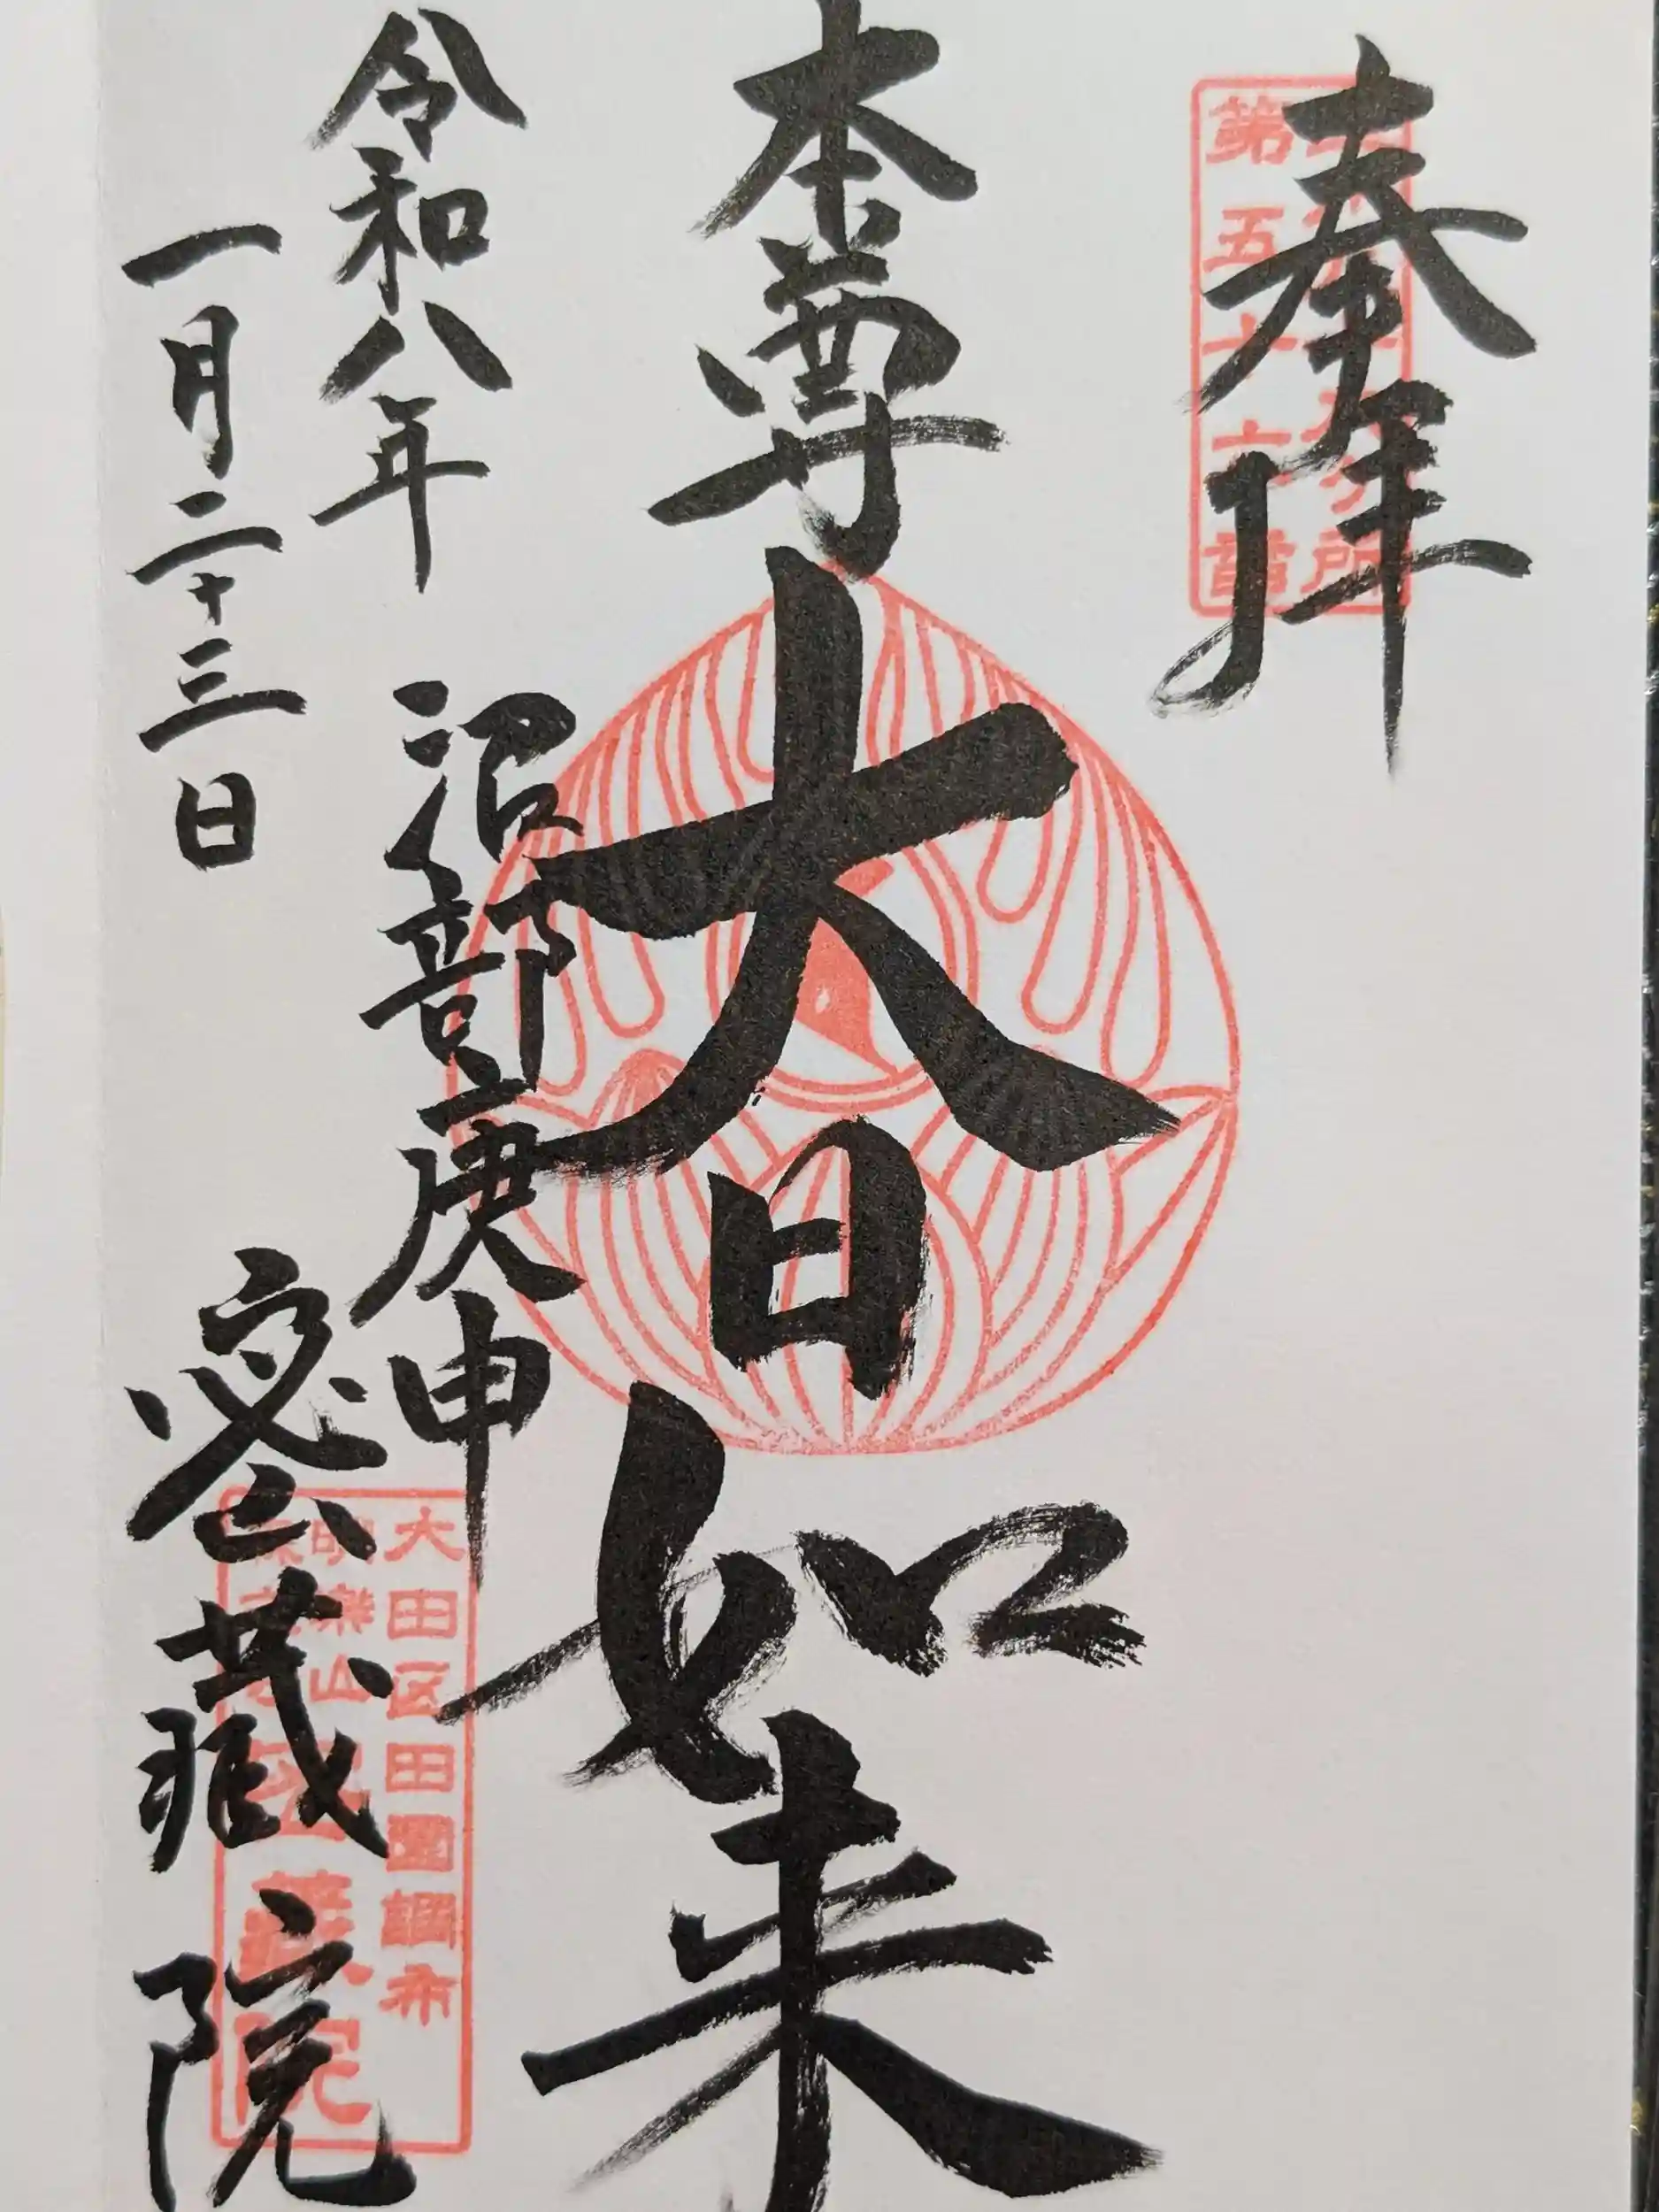 奉拝
第五十六番
本尊
大日如来
沼部庚申
令和八年
一月二十三日
密蔵院
大田区田園調布